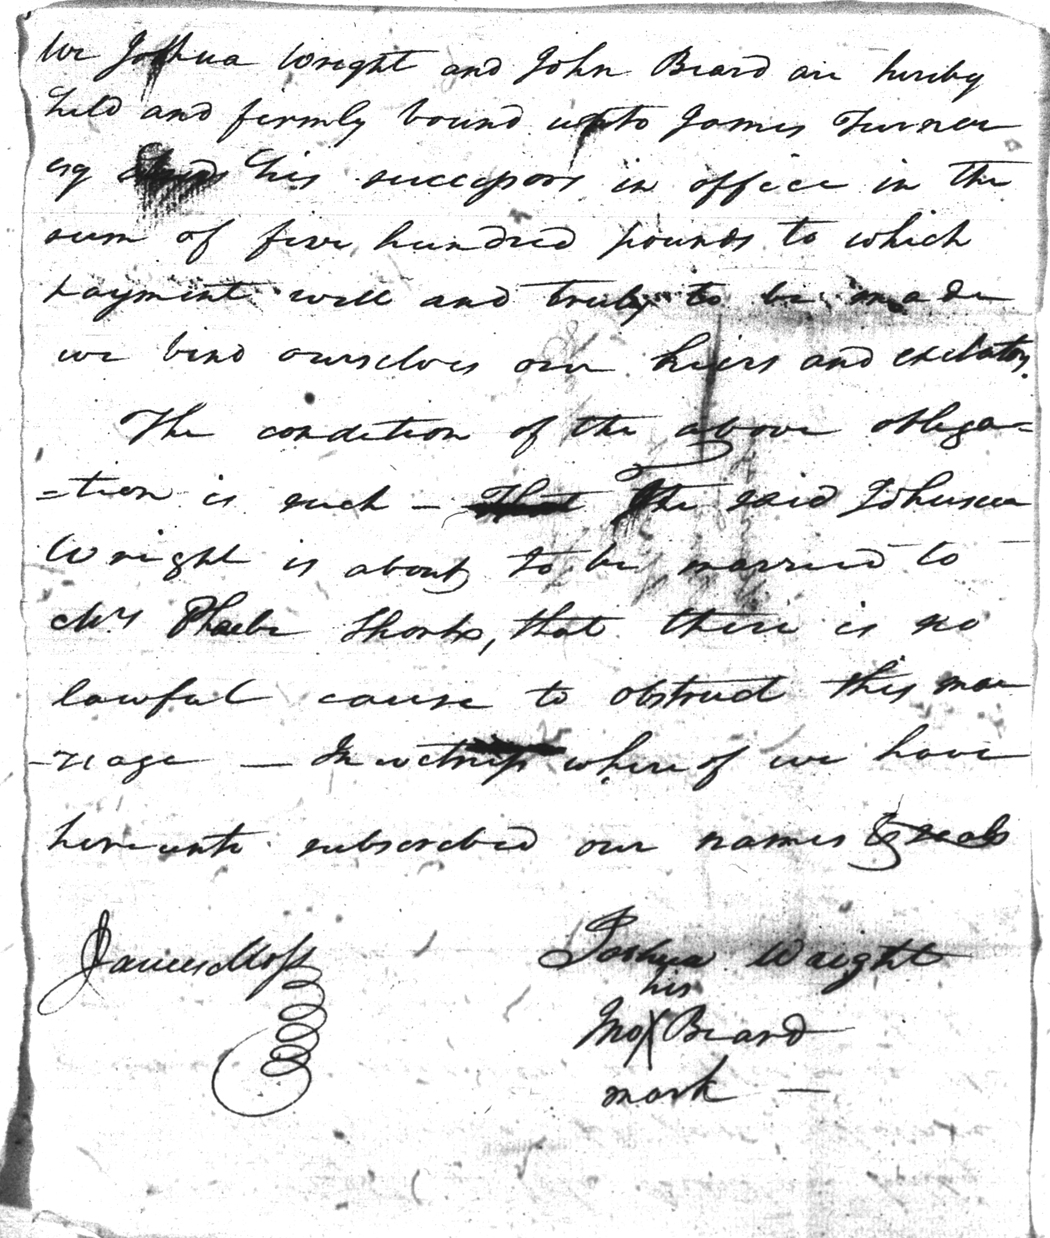 We Joshua Wright and John Beard are hereby
held and firmly bound unto James Turner
esq his successors in office in the
sum of five hundred pounds to which
payment well and truly to be made
we bind ourselves our heirs and
The condition of the above obliga=
=tion is such — That The said
Wright is about to be married to
Mrs Phoebe that there is no
lawful cause to obstruct this mar
-riage — In witness where of we have
hereunto subscribed our names & seals
James Moss
Joshua Wright
his
Jno X Beard
mark —